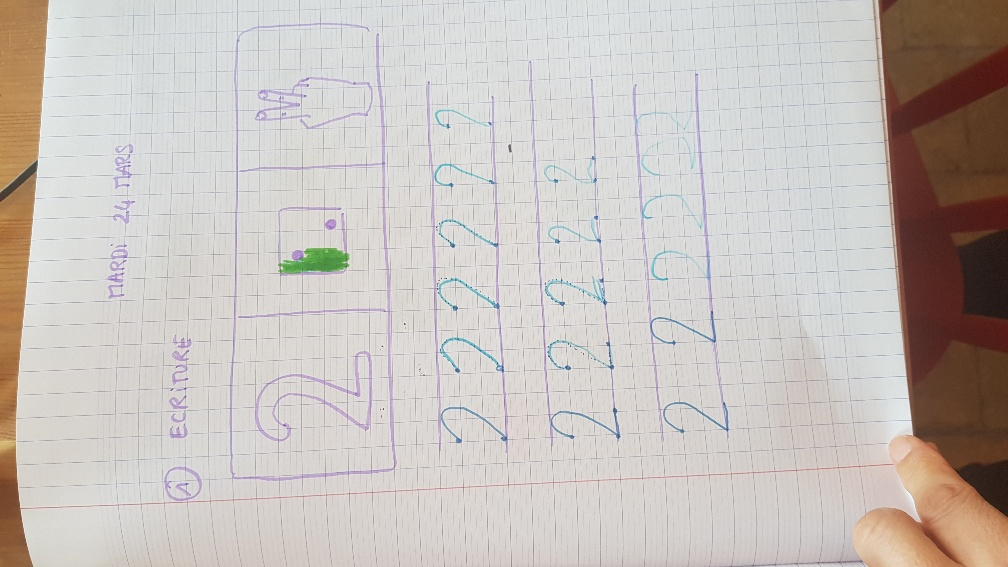 MARDI 24 MARS
1 ECRITURE
2
2 2 2 2 2 2
2 2 2 2 2
2 2 2 2